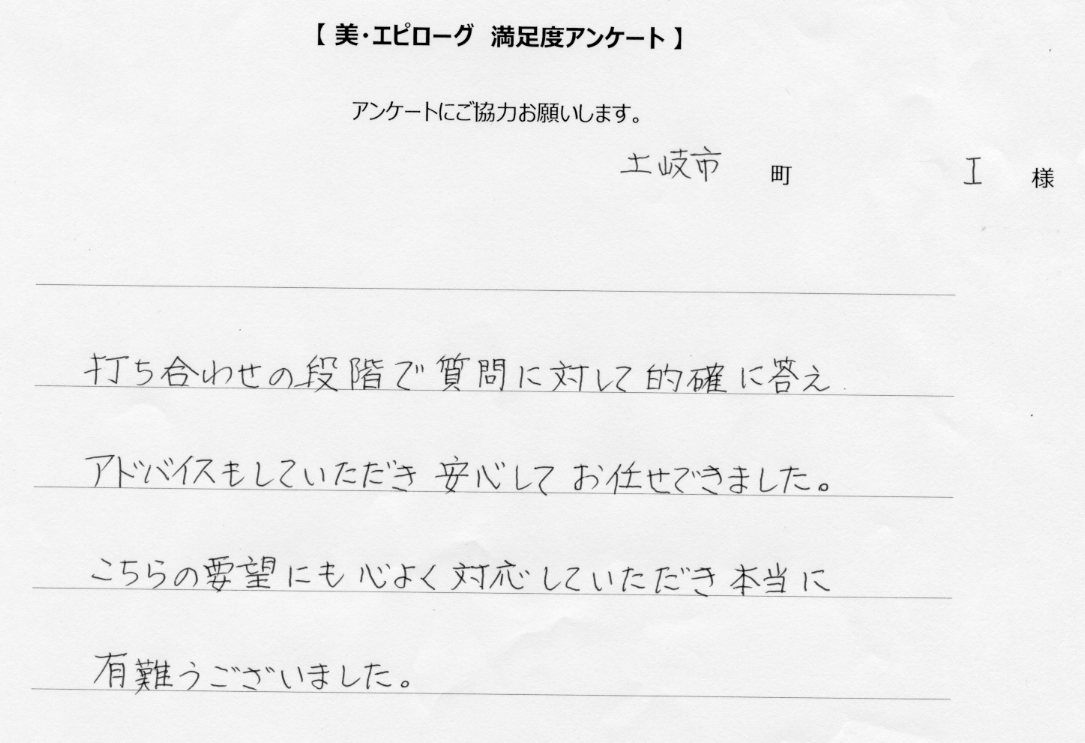 【 美・エピローグ 満足度アンケート 】
アンケートにご協力お願いします。
土岐市 町 I 様
打ち合わせの段階で質問に対して的確に答え
アドバイスもしていただき 安心して お任せできました。
こちらの要望にも 心よく 対応していただき 本当に
有難うございました。